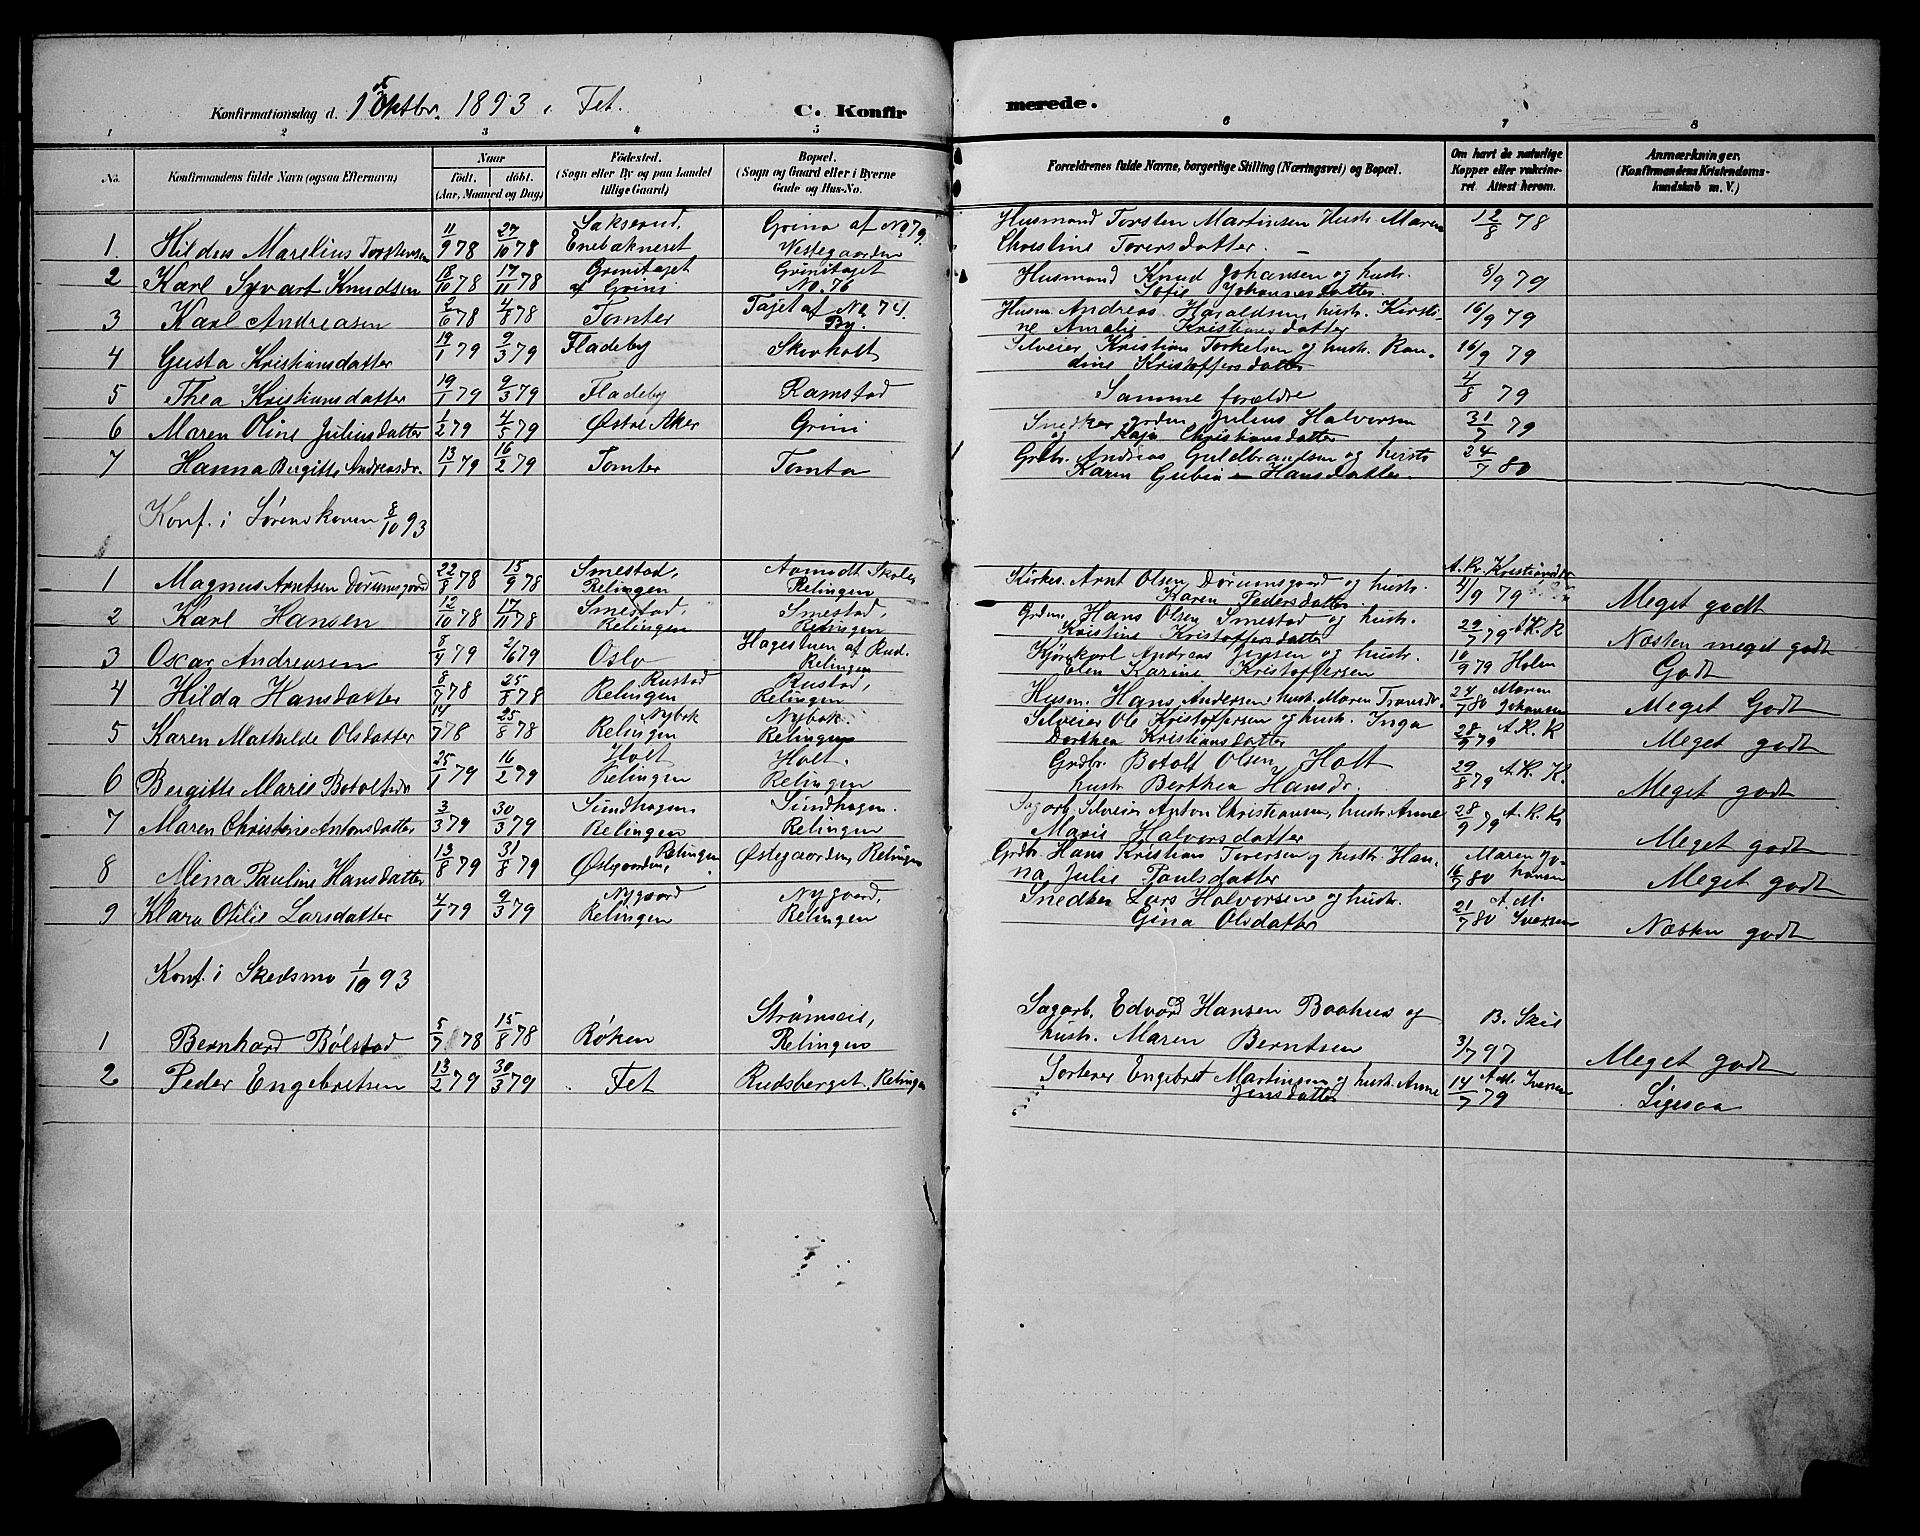 Konfirmationsdag d. 1 Oktbr. 1893 i Fet. C. Konfir merede.
1 2 3 4 5 6 7 8
No. Konfirmandens fulde Navn (ogsaa Efternavn) Naar Födt. döbt. (Aar, Maaned og Dag) Födested. (Sogn eller By og paa Landet tillige Gaard) Bopæl. (Sogn og Gaard eller i Byerne Gade og Hus-No. Forældrenes fulde Navne, borgerlige Stilling (Næringsvei) og Bopæl. Om havt de naturlige Kopper eller vaksineret. Attest herom. Anmærkninger. (Konfirmandens Kristendomskundskab m. V.)
1. Hildus Marelius Torstensen 11/9 78 27/10 78 Enebækneret Grina af No. 79. Vestegaarden Husmand Torsten Martinsen Hustr. Maren Christine Torersdatter. 12/8 78
2 Karl Syvart Knudsen 18/10 78 17/11 78 Grinitajet af Grini Grinitajet No. 76 Husmand Knud Johansen og hustr. Sofie Johannesdatter. 8/9 79
3 Karl Andreasen 2/6 78 4/8 78 Tomter Tajet af No 74. By. Husm. Andreas Haraldsen hustr. Kirstine Amalie Kristiansdatter 16/9 79
4 Gusta Kristiansdatter 19/1 79 9/3 79 Fladeby Skovholt Selveier Kristian Torkelsen og hustr. Randine Kristoffersdatter 16/9 79
5 Thea Kristiansdatter 19/1 79 9/3 79 Fladeby Ramstad Samme forældre 4/8 79
6 Maren Oline Juliusdatter 1/2 79 4/5 79 Østre Aker Grini Snedker Julius Halvorsen og Kaja Christiansdatter 31/7 79
7 Hanna Bergitte Andreasdr. 13/1 79 16/2 79 Tomter Tomta Grdbr. Andreas Guldbrandsen og hustr Karen Gubia Hansdatter. 24/7 80
Konf. i Sørenskoven 8/10 93
1 Magnus Arntsen Dørumsgaard 22/8 78 15/9 78 Smestad, Relingen Aamodt Skole Relingen Kirkes. Arnt Olsen Dørumsgaard og hustr. Karen Pedersdatter. A. K. Kristiansdtr 4/9 79 Meget godt
2 Karl Hansen 12/10 78 17/11 78 Smestad, Relingen Smestad, Relingen Grdm. Hans Olsen Smestad og hustr. Kristine Kristoffersdatter 29/7 79 A. K. K Næsten meget godt
3 Oscar Andreasen 8/4 79 2/6 79 Oslo Hagestuen af Rud. Relingen Kjørekarl Andreas Jensen og hustr. Elen Karine Kristoffersen 10/9 79 Holm Godt
4 Hilda Hansdatter 8/7 78 25/8 78 Rustad Relingen Rustad, Relingen Husm. Hans Andersen hustr. Maren Iversdr. 24/7 80 Maren Johansen Meget Godt
5 Karen Mathilde Olsdatter 14/7 78 25/8 78 Nybak Relingen Nybak. Relingen Selveier Ole Kristoffersen og hustr. Inga Dorthea Kristiansdatter 28/9 79 A. K. K Meget godt
6 Bergitte Marie Botolfsdr 25/1 79 16/2 79 Holt Relingen Holt. Relingen Grdbr. Botolf Olsen Holt hustr Berthea Hansdr. 29/8 79 A. K. K. Meget godt
7 Maren Christine Antonsdatter 3/3 79 30/3 79 Sundhagen, Relingen Sundhagen. Relingen Sagarb. Selveier Anton Christiansen, hustr. Anne Marie Halvorsdatter 28/9 79 A. K. K. Meget godt
8 Mina Pauline Hansdatter 13/8 79 31/8 79 Østgaarden, Relingen Østegaarden, Relingen Grdbr. Hans Kristian Toversen og hustr. Hanna Julie Paulsdatter Maren Johansen 16/7 80 Meget godt
9 Klara Otilie Larsdatter 4/1 79 9/3 79 Nygaard Relingen Nygaard, Relingen Snedker Lars Halvorsen og hustr. Gina Olsdatter 21/7 80 A. M. Iversen Næsten godt
Konf. i Skedsmo 1/10 93
1 Bernhard Bølstad 5/7 78 15/8 78 Røken Strømseie, Relingen Sagarb. Edvard Hansen Baahus og hustr. Maren Berntsen B. Skie 3/7 97 Meget godt
2 Peder Engebretsen 13/2 79 30/3 79 Fet Rudsberget, Relingen Sorterer Engebret Martinsen og hustr. Anne Jensdatter 14/7 79 A. M. Iversen Ligesaa